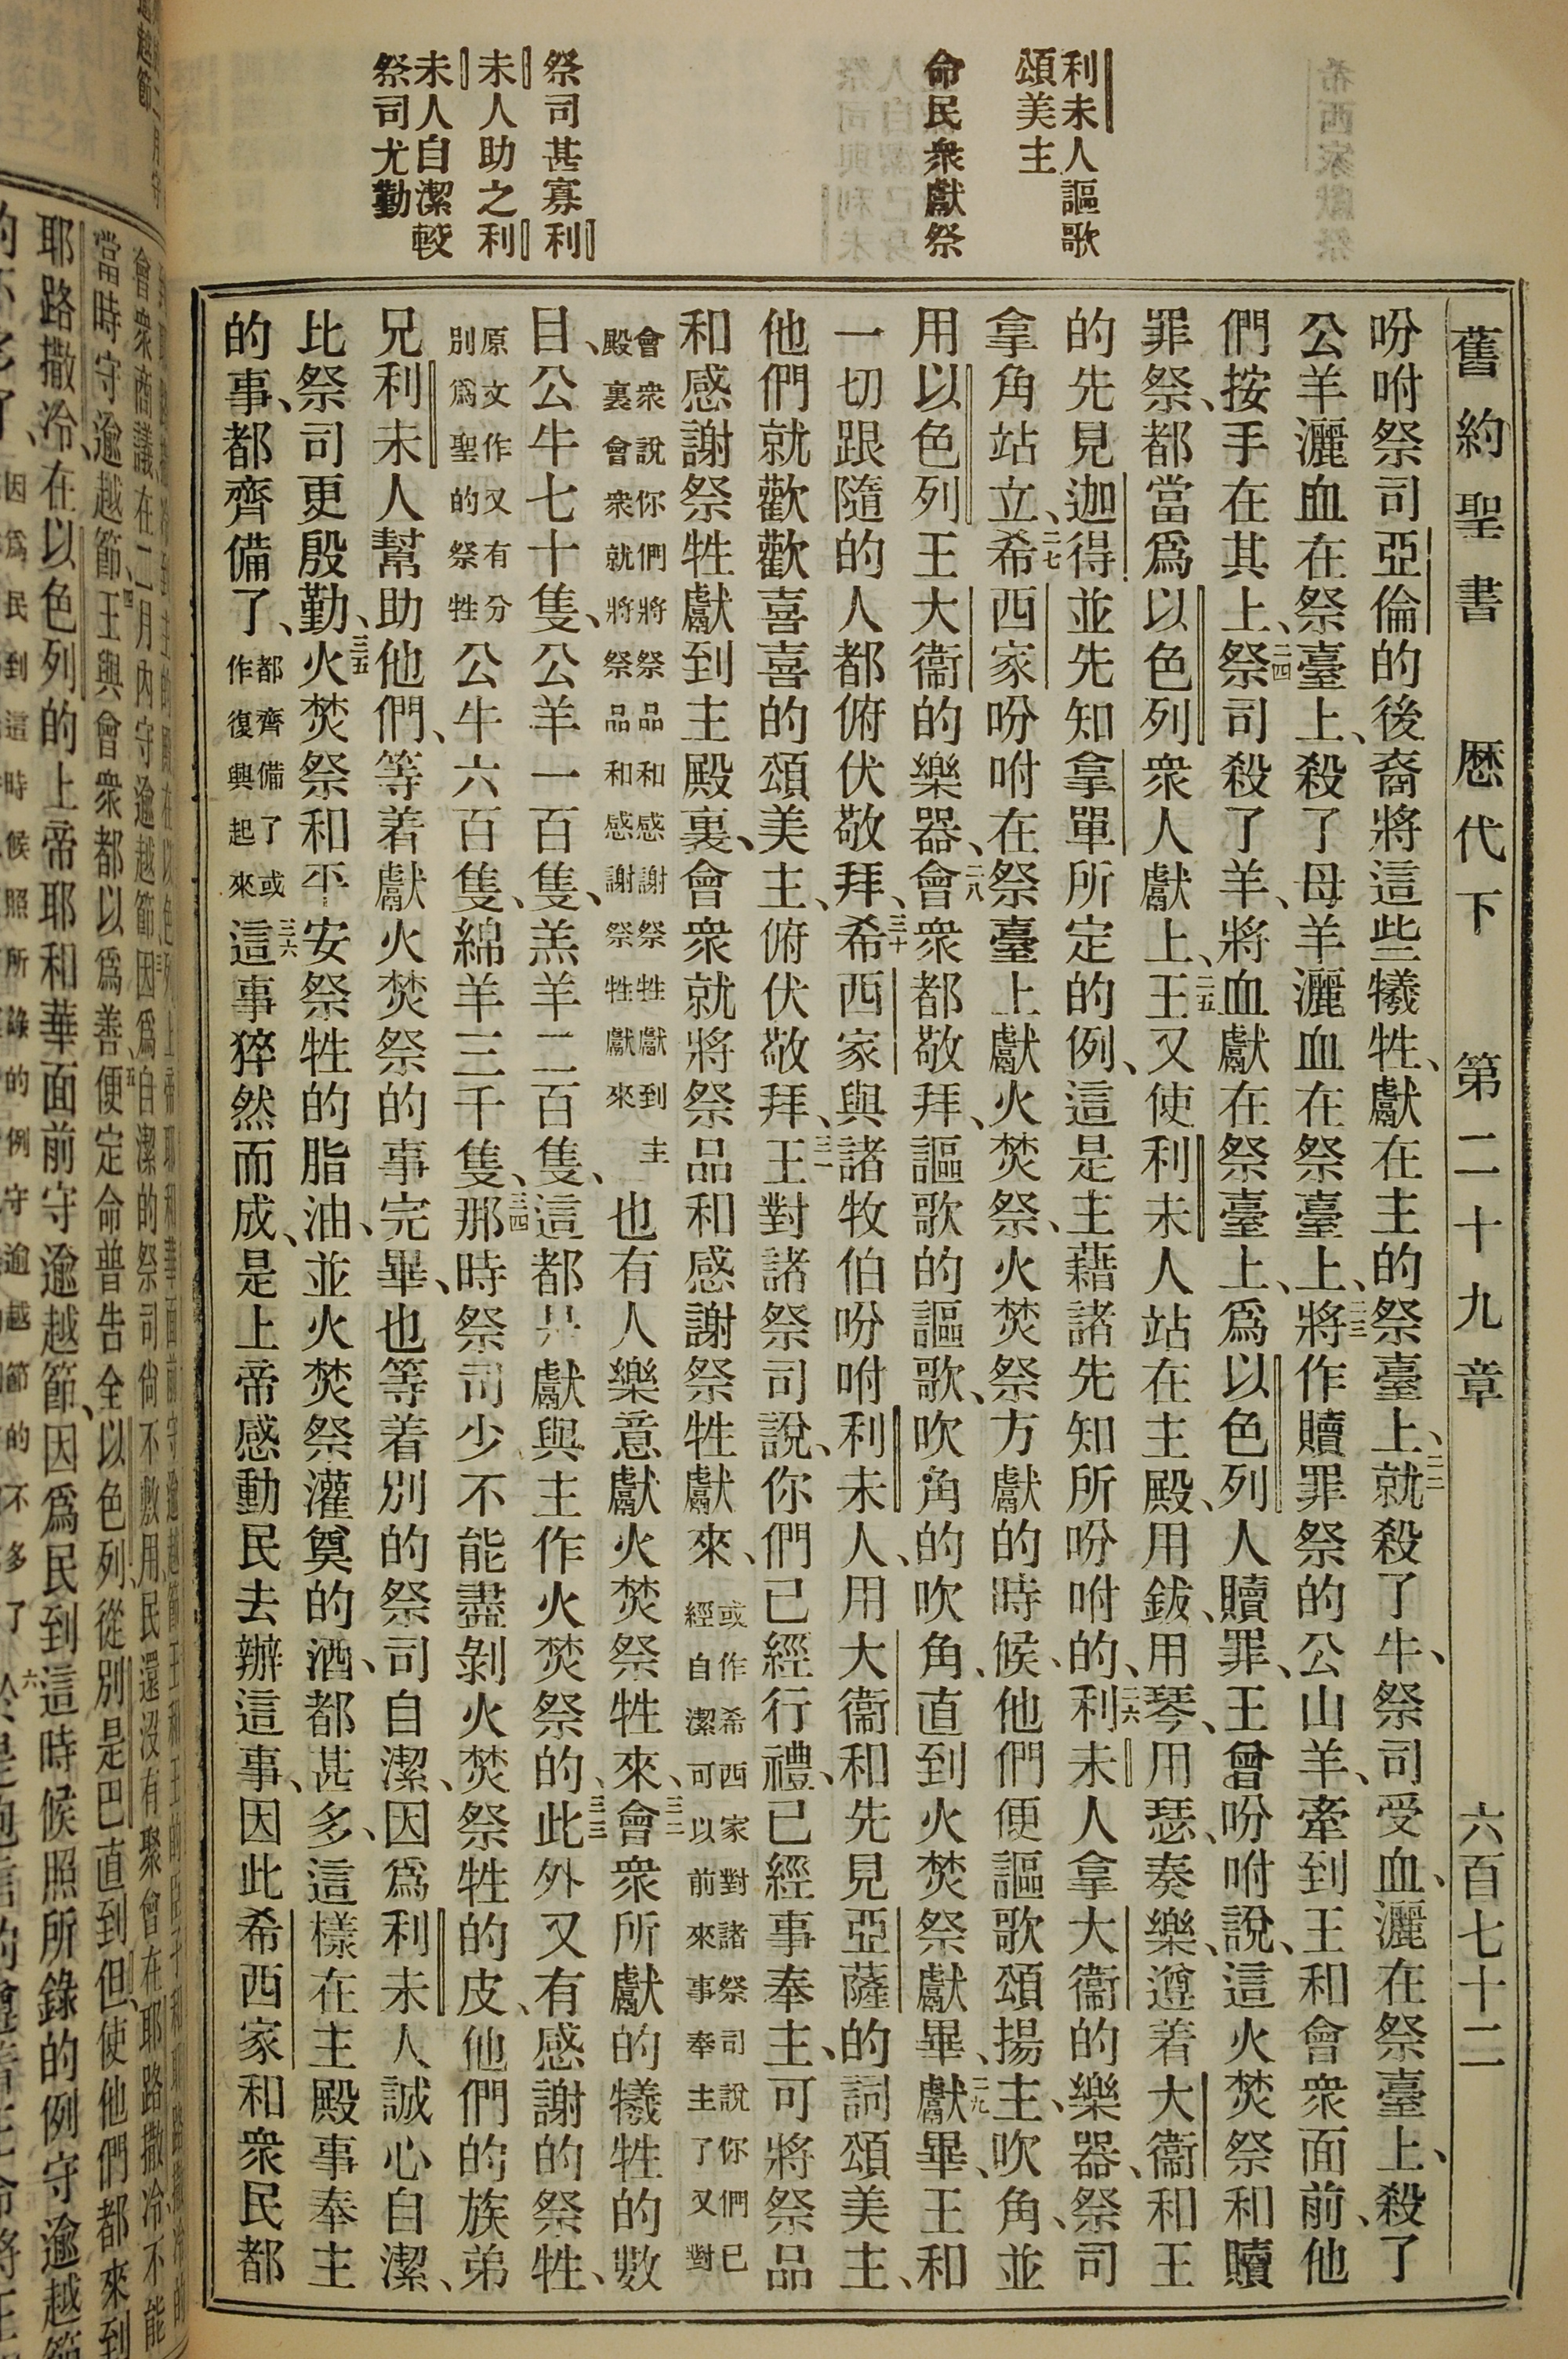 舊約聖書 歷代下 第二十九章 六百七十二
利未人謳歌
頌美主
命民衆獻祭
祭司甚寡利
未人助之利
未人自潔較
祭司尤勤
吩咐祭司亞倫的後裔將這些犧牲、獻在主的祭臺上、二二就殺了牛、祭司受血、灑在祭臺上、殺了
公羊灑血在祭臺上、殺了母羊灑血在祭臺上、二三將作贖罪祭的公山羊、牽到王和會衆面前、他
們按手在其上、二四祭司殺了羊、將血獻在祭臺上、爲以色列人贖罪、王曾吩咐說、這火焚祭和贖
罪祭、都當爲以色列衆人獻上、二五王又使利未人站在主殿、用鈸、用琴、用瑟、奏樂、遵着大衞和王
的先見迦得並先知拿單所定的例、這是主藉諸先知所吩咐的、二六利未人拿大衞的樂器、祭司
拿角站立、二七希西家吩咐在祭臺上獻火焚祭、火焚祭方獻的時候、他們便謳歌頌揚主、吹角、並
用以色列王大衞的樂器、二八會衆都敬拜、謳歌的謳歌、吹角的吹角、直到火焚祭獻畢、二九獻畢、王和
一切跟隨的人都俯伏敬拜、三十希西家與諸牧伯吩咐利未人、用大衞和先見亞薩的詞頌美主、
他們就歡歡喜喜的頌美主、俯伏敬拜、三一王對諸祭司說、你們已經行禮、已經事奉主、可將祭品
和感謝祭牲獻到主殿裏、會衆就將祭品和感謝祭牲獻來、或作希西家對諸祭司說你們已經自潔可以前來事奉主了又對
會衆說你們將祭品和感謝祭牲獻到主殿裏會衆就將祭品和感謝祭牲獻來也有人樂意獻火焚祭牲來、三二會衆所獻的犧牲的數
目、公牛七十隻、公羊一百隻、羔羊二百隻、這都是獻與主作火焚祭的、三三此外又有感謝的祭牲、
原文作又有分別爲聖的祭牲公牛六百隻、綿羊三千隻、三四那時祭司少不能盡剝火焚祭牲的皮、他們的族弟
兄利未人幫助他們、等着獻火焚祭的事完畢、也等着別的祭司自潔、因爲利未人誠心自潔、
比祭司更殷勤、三五火焚祭和平安祭牲的脂油、並火焚祭灌奠的酒、都甚多、這樣在主殿事奉主
的事、都齊備了、都齊備了或作復興起來三六這事猝然而成、是上帝感動民去辦這事、因此希西家和衆民都
會衆商議在二月內守逾越節因爲自潔的祭司尙不敷用、民還沒有聚會在耶路撒冷不能
當時守逾越節、四王與會衆都以爲善、五便定命普告全以色列、從別是巴直到但、使他們都來到
耶路撒冷、在以色列的上帝耶和華面前守逾越節、因爲民到這時候照所錄的例守逾越節